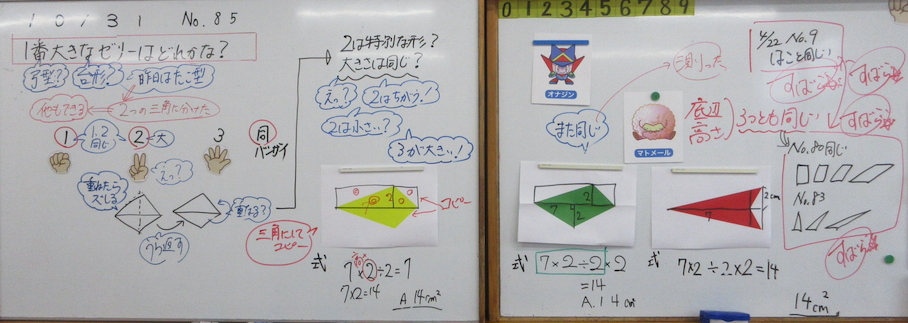 10/31 No.85
1番大きなゼリーはどれかな?
台形?
昨日はたこ型
他もできる
2つの三角に分けた
1
1.2同じ
2
大
3
同
バンザイ
えっ?
重ねたらズレる
重なる?
うら返す
三角にしてコピー
2は特別な形?
大きさは同じ?
えっ?
2はちがう!
2は小さい?
3が大きい!
2
7
コピー
式
7×2÷2=7
7×2=14
A 14cm²
0 1 2 3 4 5 6 7 8 9
オナジン
また同じ
マトメール
底辺
高さ
3つとも同じ!
4/22 No.9
ほこと同じ
すばらしい
すばらしい
すばらしい
No.80同じ
No.83
すばらしい
2
7
4
2
7
2cm
式
7×2÷2×2
=14
A.14cm
式
7×2÷2×2=14
14cm²